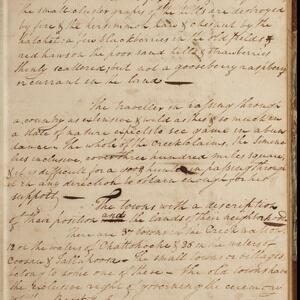 the small cluster grapes of the hills are destroyed
by fire & the persimmon, haw & chesnut by the
hatchet a few blackberries in the old fields &
red haws on the poor sand hills & strawberries
thinly scattered, but not a gooseberry raspberry
or currant in the land
The traveller in passing through
a country as extensive & wild as this & so much in
a state of nature expects to see game in abun
dance. The whole of the Creek claims, the Semino
lies inclusive, cover three hundred miles square,
& it is difficult for a good hunter in passing through
it in any direction to obtain enough for his
support
The towns with a description
of their position and the lands of their neighborhood
There are 37 towns in the Creek nation
12 on the waters of Chattohoche & 25 on the waters of
Coosau & Tallapoosa. The small towns or villages
belong to some one of these. The old towns have
the exclusive right of governing the ceremony